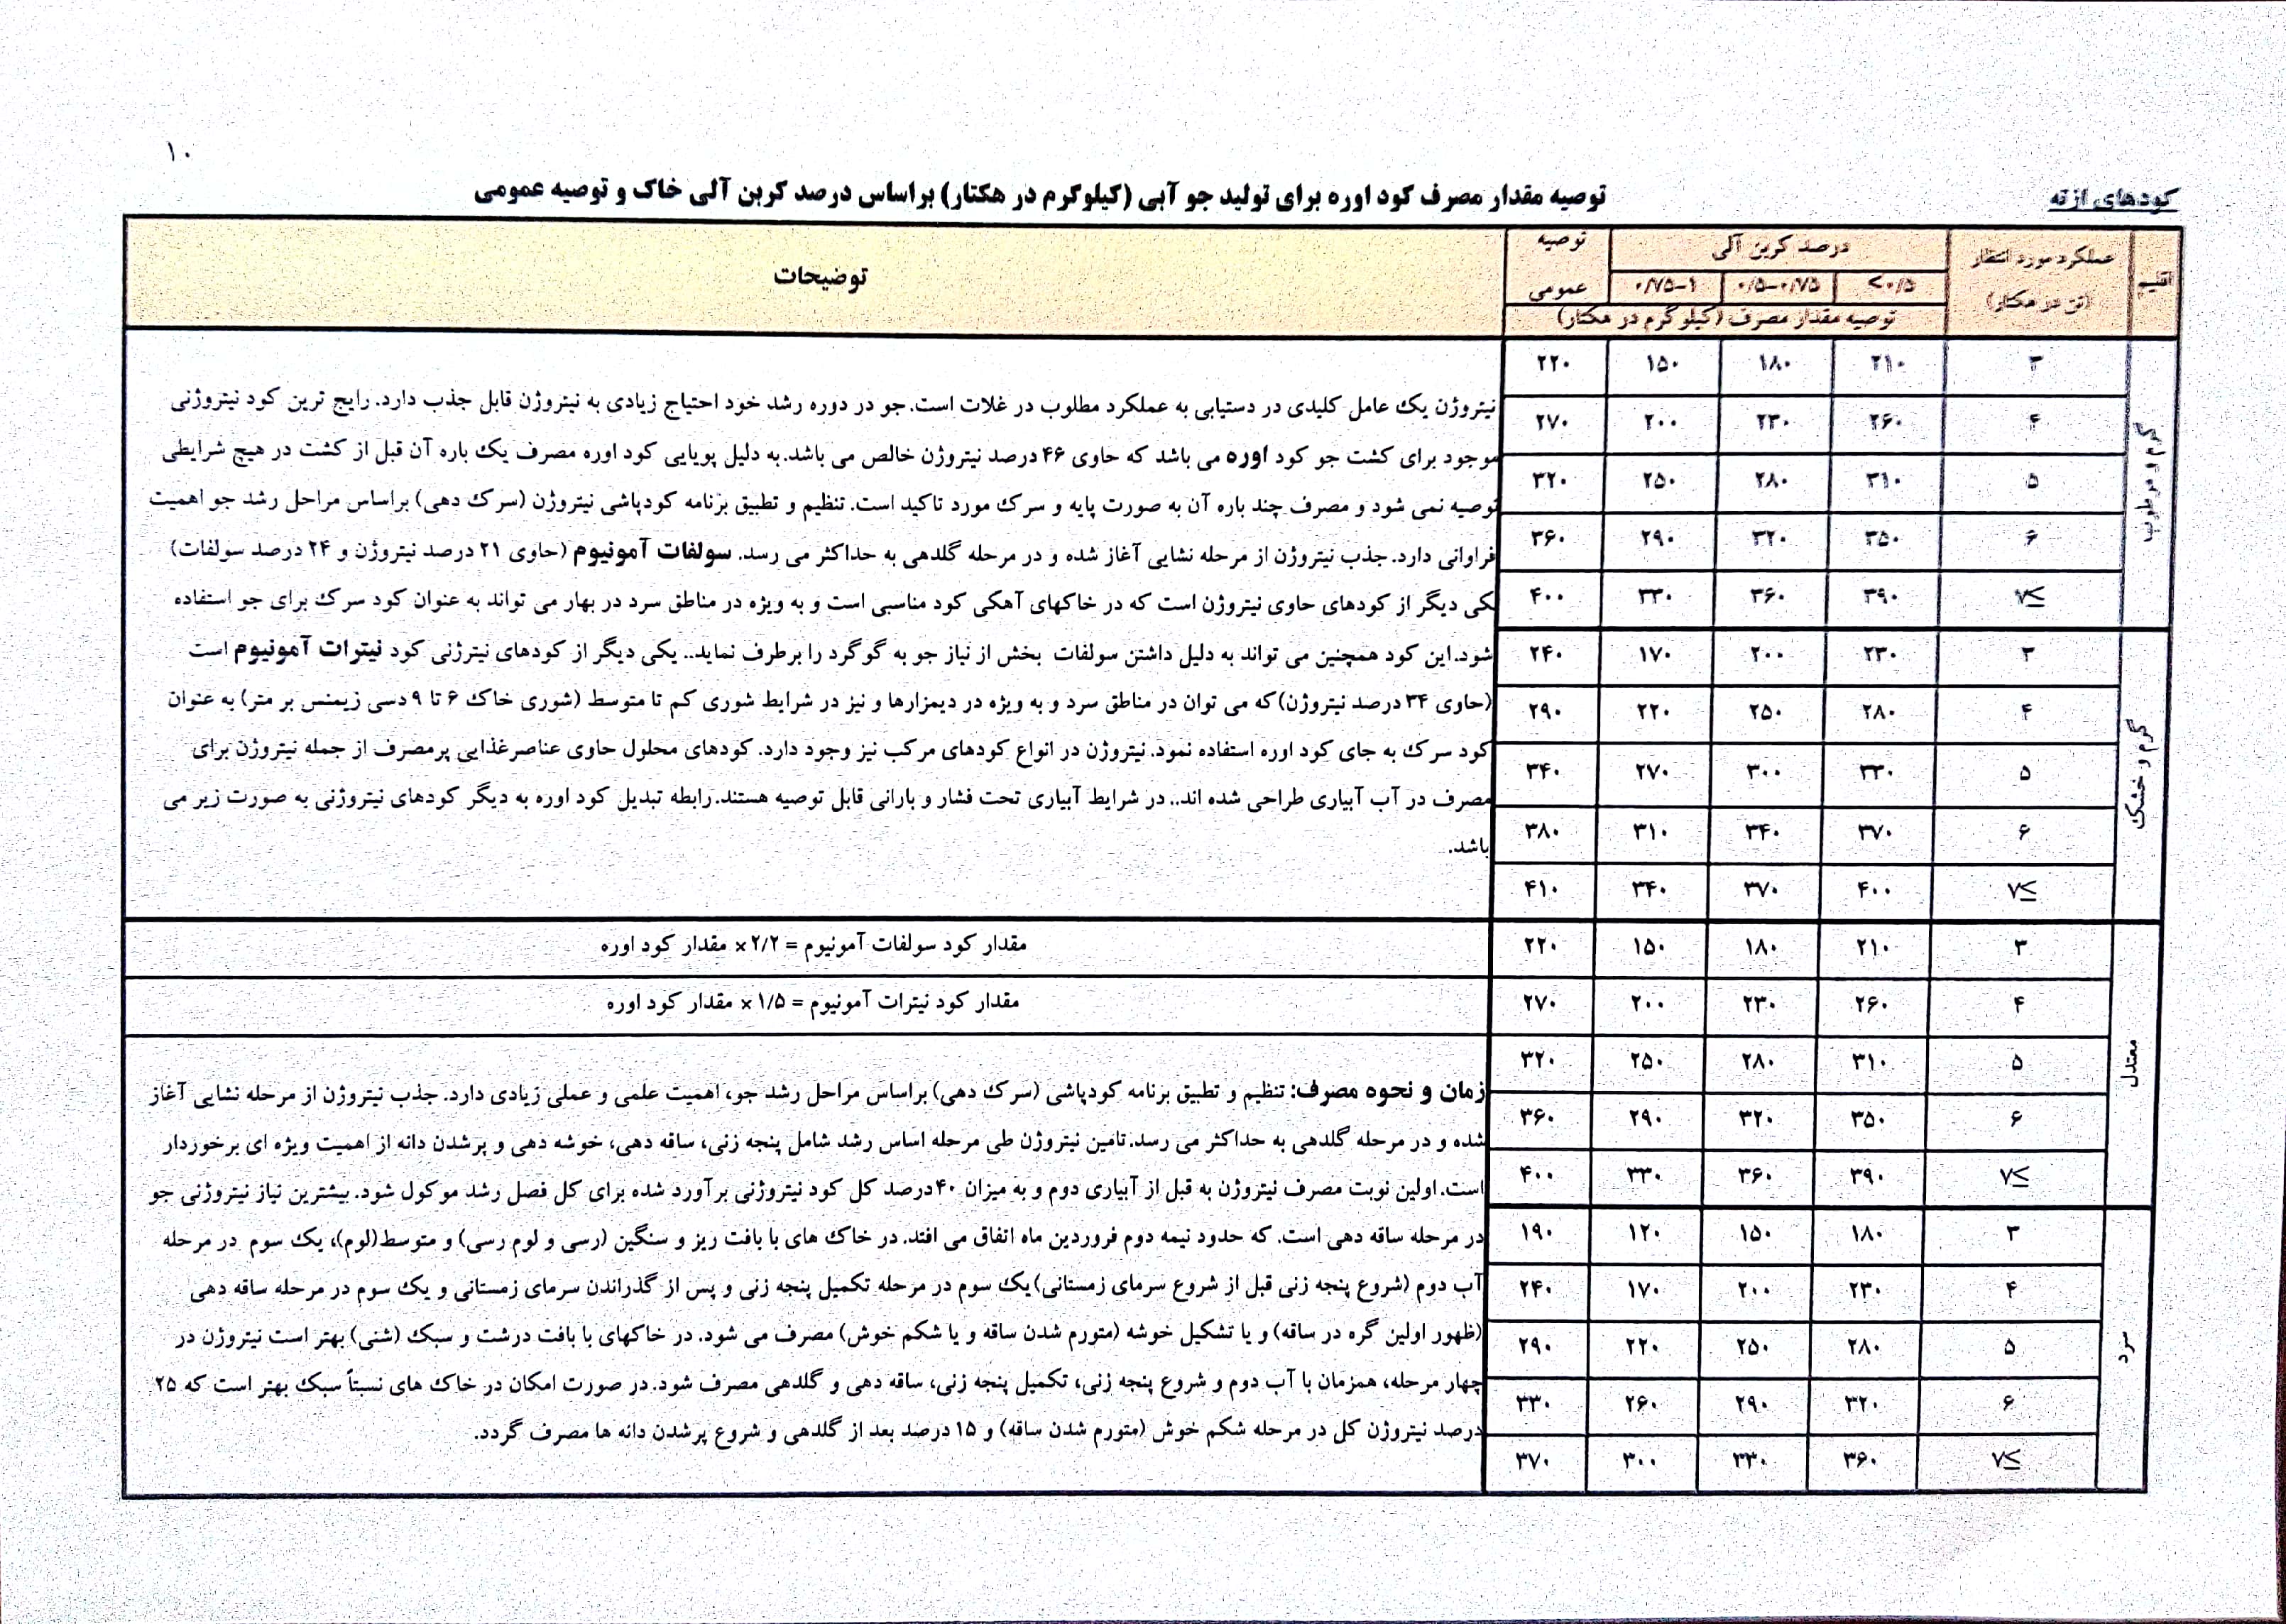 ۱۰
کودهای ازته
توصیه مقدار مصرف کود اوره برای تولید جو آبی (کیلوگرم در هکتار) براساس درصد کربن آلی خاک و توصیه عمومی
اقلیم عملکرد مورد انتظار (تن در هکتار) درصد کربن آلی توصیه عمومی توضیحات
<۰/۵ ۰/۵-۰/۷۵ ۰/۷۵-۱
توصیه مقدار مصرف (کیلوگرم در هکتار)
گرم و مرطوب
۳ ۲۱۰ ۱۸۰ ۱۵۰ ۲۲۰
۴ ۲۶۰ ۲۳۰ ۲۰۰ ۲۷۰
۵ ۳۱۰ ۲۸۰ ۲۵۰ ۳۲۰
۶ ۳۵۰ ۳۲۰ ۲۹۰ ۳۶۰
≥۷ ۳۹۰ ۳۶۰ ۳۳۰ ۴۰۰
گرم و خشک
۳ ۲۳۰ ۲۰۰ ۱۷۰ ۲۴۰
۴ ۲۸۰ ۲۵۰ ۲۲۰ ۲۹۰
۵ ۳۳۰ ۳۰۰ ۲۷۰ ۳۴۰
۶ ۳۷۰ ۳۴۰ ۳۱۰ ۳۸۰
≥۷ ۴۰۰ ۳۷۰ ۳۴۰ ۴۱۰
معتدل
۳ ۲۱۰ ۱۸۰ ۱۵۰ ۲۲۰
۴ ۲۶۰ ۲۳۰ ۲۰۰ ۲۷۰
۵ ۳۱۰ ۲۸۰ ۲۵۰ ۳۲۰
۶ ۳۵۰ ۳۲۰ ۲۹۰ ۳۶۰
≥۷ ۳۹۰ ۳۶۰ ۳۳۰ ۴۰۰
سرد
۳ ۱۸۰ ۱۵۰ ۱۲۰ ۱۹۰
۴ ۲۳۰ ۲۰۰ ۱۷۰ ۲۴۰
۵ ۲۸۰ ۲۵۰ ۲۲۰ ۲۹۰
۶ ۳۲۰ ۲۹۰ ۲۶۰ ۳۳۰
≥۷ ۳۶۰ ۳۳۰ ۳۰۰ ۳۷۰
نیتروژن یک عامل کلیدی در دستیابی به عملکرد مطلوب در غلات است. جو در دوره رشد خود احتیاج زیادی به نیتروژن قابل جذب دارد. رایج ترین کود نیتروژنی
موجود برای کشت جو کود اوره می باشد که حاوی ۴۶ درصد نیتروژن خالص می باشد. به دلیل پویایی کود اوره مصرف یک باره آن قبل از کشت در هیچ شرایطی
توصیه نمی شود و مصرف چند باره آن به صورت پایه و سرک مورد تاکید است. تنظیم و تطبیق برنامه کودپاشی نیتروژن (سرک دهی) براساس مراحل رشد جو اهمیت
فراوانی دارد. جذب نیتروژن از مرحله نشایی آغاز شده و در مرحله گلدهی به حداکثر می رسد. سولفات آمونیوم (حاوی ۲۱ درصد نیتروژن و ۲۴ درصد سولفات)
یکی دیگر از کودهای حاوی نیتروژن است که در خاکهای آهکی کود مناسبی است و به ویژه در مناطق سرد در بهار می تواند به عنوان کود سرک برای جو استفاده
شود. این کود همچنین می تواند به دلیل داشتن سولفات بخش از نیاز جو به گوگرد را برطرف نماید.. یکی دیگر از کودهای نیترژنی کود نیترات آمونیوم است
(حاوی ۳۴ درصد نیتروژن) که می توان در مناطق سرد و به ویژه در دیمزارها و نیز در شرایط شوری کم تا متوسط (شوری خاک ۶ تا ۹ دسی زیمنس بر متر) به عنوان
کود سرک به جای کود اوره استفاده نمود. نیتروژن در انواع کودهای مرکب نیز وجود دارد. کودهای محلول حاوی عناصرغذایی پرمصرف از جمله نیتروژن برای
مصرف در آب آبیاری طراحی شده اند.. در شرایط آبیاری تحت فشار و بارانی قابل توصیه هستند. رابطه تبدیل کود اوره به دیگر کودهای نیتروژنی به صورت زیر می
باشد.
مقدار کود سولفات آمونیوم = ۲/۲ × مقدار کود اوره
مقدار کود نیترات آمونیوم = ۱/۵ × مقدار کود اوره
زمان و نحوه مصرف: تنظیم و تطبیق برنامه کودپاشی (سرک دهی) براساس مراحل رشد جو، اهمیت علمی و عملی زیادی دارد. جذب نیتروژن از مرحله نشایی آغاز
شده و در مرحله گلدهی به حداکثر می رسد. تامین نیتروژن طی مرحله اساس رشد شامل پنجه زنی، ساقه دهی، خوشه دهی و پرشدن دانه از اهمیت ویژه ای برخوردار
است. اولین نوبت مصرف نیتروژن به قبل از آبیاری دوم و به میزان ۴۰ درصد کل کود نیتروژنی برآورد شده برای کل فصل رشد موکول شود. بیشترین نیاز نیتروژنی جو
در مرحله ساقه دهی است. که حدود نیمه دوم فروردین ماه اتفاق می افتد. در خاک های با بافت ریز و سنگین (رسی و لوم رسی) و متوسط(لوم)، یک سوم در مرحله
آب دوم (شروع پنجه زنی قبل از شروع سرمای زمستانی) یک سوم در مرحله تکمیل پنجه زنی و پس از گذراندن سرمای زمستانی و یک سوم در مرحله ساقه دهی
(ظهور اولین گره در ساقه) و یا تشکیل خوشه (متورم شدن ساقه و یا شکم خوش) مصرف می شود. در خاکهای با بافت درشت و سبک (شنی) بهتر است نیتروژن در
چهار مرحله، همزمان با آب دوم و شروع پنجه زنی، تکمیل پنجه زنی، ساقه دهی و گلدهی مصرف شود. در صورت امکان در خاک های نسبتاً سبک بهتر است که ۲۵
درصد نیتروژن کل در مرحله شکم خوش (متورم شدن ساقه) و ۱۵ درصد بعد از گلدهی و شروع پرشدن دانه ها مصرف گردد.